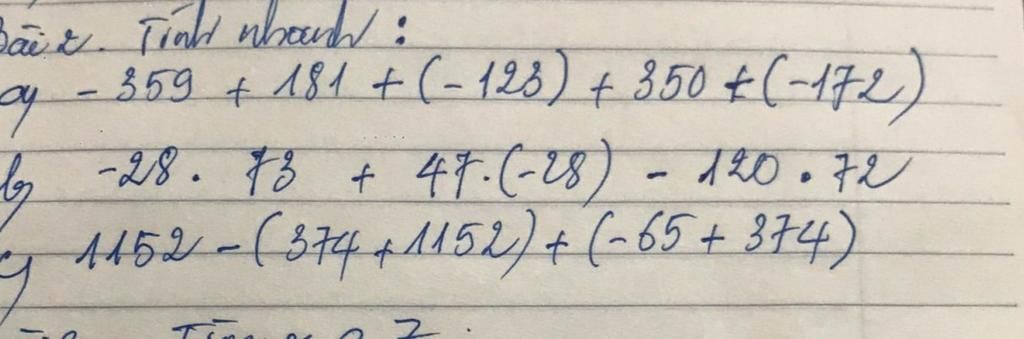 Bài 2. Tính nhanh :
a) - 359 + 181 + (- 123) + 350 + (- 172)
b) -28 . 73 + 47.(-28) - 120 . 72
c) 1152 - (374 + 1152) + (-65 + 374)